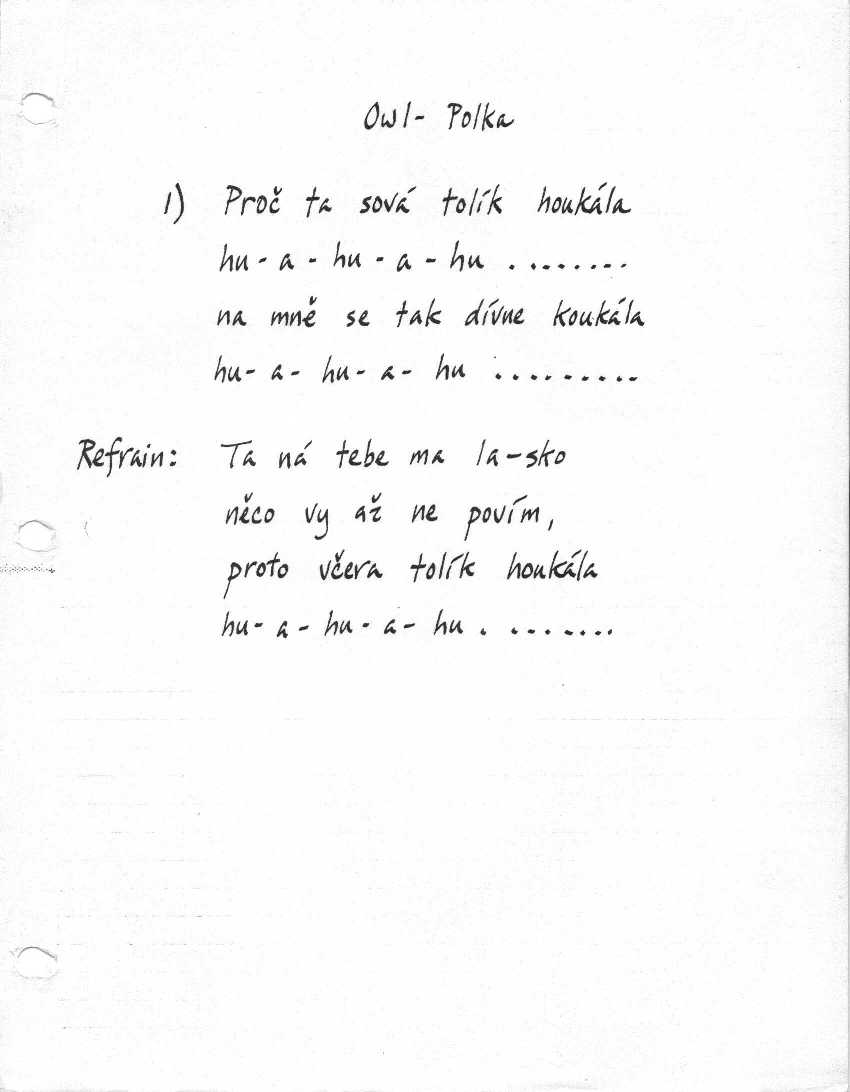 Owl- Polka
1) Proč ta sová tolík houkála
hu - a - hu - a - hu . ........
na mně se tak dívne koukála
hu- a- hu- a- hu .........
Refrain: Ta ná tebe ma la-sko
něco vy až ne povím,
proto včera tolík houkála
hu- a- hu- a- hu . ........